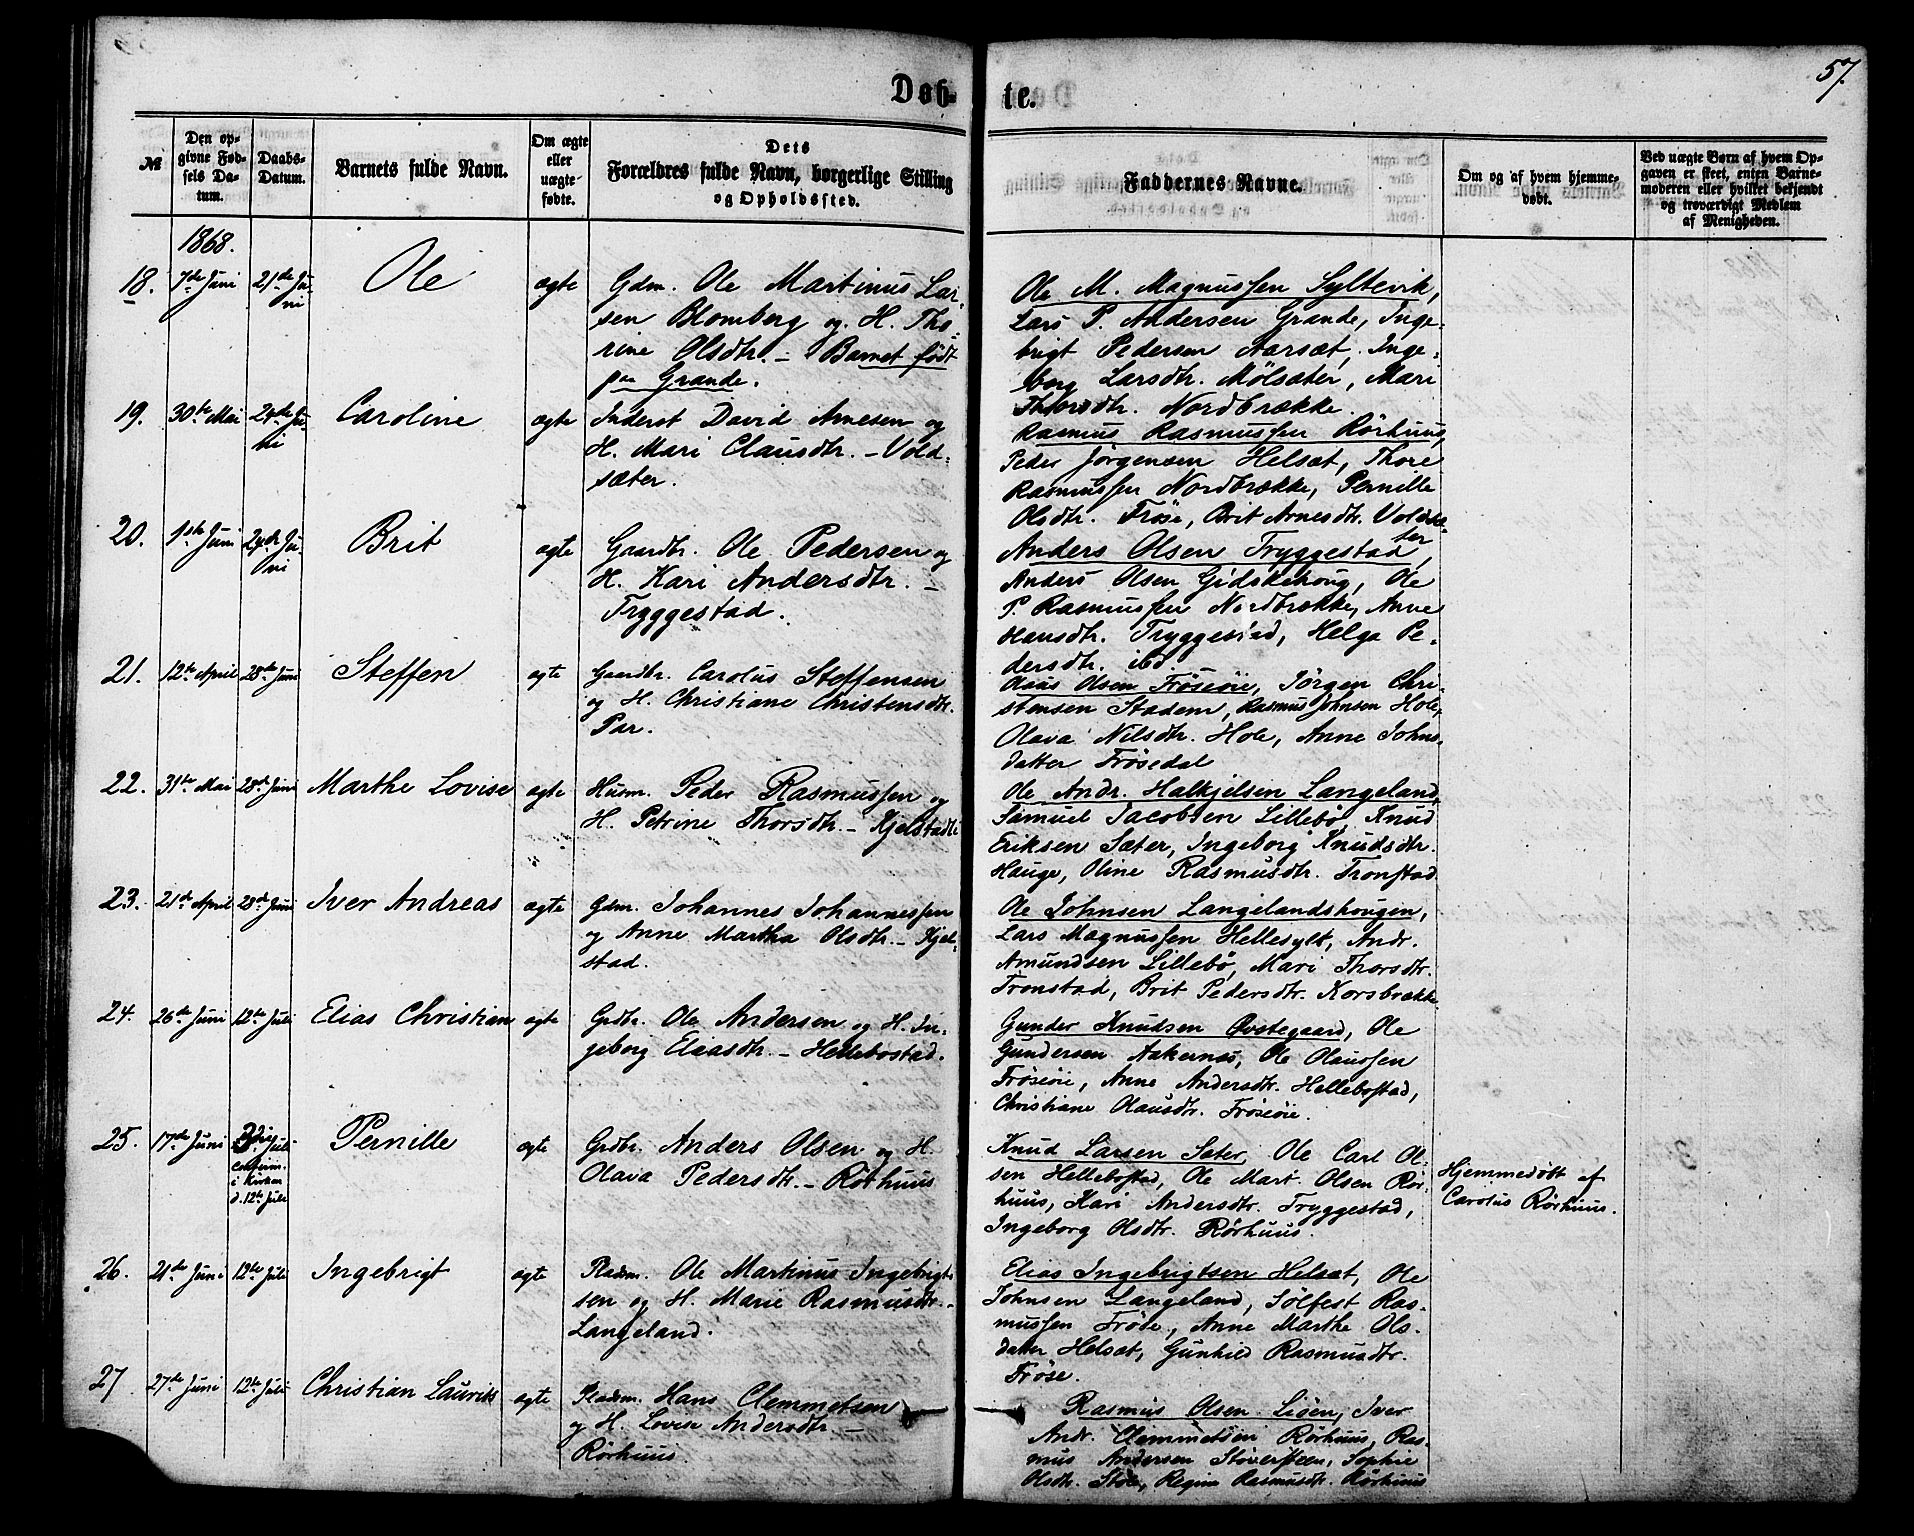 Døb-
te.
57.
№
Den op-
givne Fød-
sels Da-
tum.
Daabs-
Datum.
Barnets fulde Navn.
Om ægte
eller
uægte
fødte.
Dets
Forældres fulde Navn, borgerlige Stilling
og Opholdssted.
Faddernes Navne.
Om og af hvem hjemme-
døbt.
Ved uægte Børn af hvem Op-
gaven er skeet, enten Barne-
moderen eller hvilket bekjendt
og troværdigt Medlem
af Menigheden.
1868.
18. 7de Juni 21de Ju-
ni
Ole
ægte
Gdm. Ole Martinus Lar-
sen Blomberg og H. Tho-
rine Olsdtr. – Barnet født
paa Grande.
Ole M. Magnussen Syltevik,
Lars P. Andersen Grande, Inge-
brigt Pedersen Aarsæt, Inge-
borg Larsdtr. Mølsæter, Mari
Thorsdtr. Nordbrække.
19. 30te Mai 24de Ju-
ni
Caroline
ægte
Inderst David Arnesen og
H. Mari Clausdtr. – Vold-
sæter.
Rasmus Rasmussen Rørhuus,
Peder Jørgensen Helsæt, Thore
Rasmussen Nordbrække, Pernille
Olsdtr. Frøse, Brit Arnesdtr. Voldsæ-
ter
20. 1ste Juni 24de Ju-
ni
Brit
ægte
Gaardbr. Ole Pedersen og
H. Kari Andersdtr. –
Tryggestad.
Anders Olsen Tryggestad,
Anders Olsen Gidskehoug, Ole
P. Rasmussen Nordbrække, Anne
Hansdtr. Tryggestad, Helga Pe-
dersdtr. ibd.
21. 12te April 28de Juni
Steffen
ægte
Gaardbr. Carolus Steffensen
og H. Christiane Christensdtr.
Par.
Olaus Olsen Frøseøie, Jørgen Chri-
stensen Stadem, Rasmus Johnsen Hole,
Olava Nilsdtr. Hole, Anne Johns-
datter Frøsedal
22. 31te Mai 28de Juni
Marthe Lovise
ægte
Husm. Peder Rasmussen og
H. Petrine Thorsdtr. – Kjelstadli
Ole Andr. Halkjelsen Langeland,
Samuel Jacobsen Lillebø, Knud
Eriksen Sæter, Ingeborg Knudsdtr.
Hauge, Oline Rasmusdtr. Tronstad
23. 21de April 28de Juni
Iver Andreas
ægte
Gdm. Johannes Johannessen
og Anne Martha Olsdtr. – Kjel-
stad.
Ole Johnsen Langelandshougen,
Lars Magnussen Hellesylt, Andr.
Amundsen Lillebø, Mari Thorsdtr.
Tronstad, Brit Pedersdtr. Korsbrække
24. 26de Juni 12te Juli
Elias Christian
ægte
Grdbr. Ole Andersen og H. In-
geborg Eliasdtr. – Hellebostad.
Gunder Knudsen Øvstegaard, Ole
Gundersen Aakernæs, Ole Olaussen
Frøseøie, Anne Andersdtr. Hellebostad,
Christiane Olausdtr. Frøseøie.
25. 17de Juni 3die Juli
confirm.
i Kirken
d. 12te Juli
Pernille
ægte
Grdbr. Anders Olsen og H.
Olava Pedersdtr. – Rørhuus
Knud Larsen Sæter, Ole Carl Ol-
sen Hellebostad, Ole Mart. Olsen Rør-
huus, Kari Andersdtr. Tryggestad,
Ingeborg Olsdtr. Rørhuus.
Hjemmedøbt af
Carolus Rørhuus.
26. 21de Juni 12te Juli
Ingebrigt
ægte
Pladsm. Ole Martinus Ingebrigt-
sen og H. Marie Rasmusdtr. –
Langeland.
Elias Ingebrigtsen Helsæt, Ole
Johnsen Langeland, Sølfest Ras-
mussen Frøse, Anne Marthe Ols-
datter Helsæt, Gunhild Rasmusdtr.
Frøse.
27 27de Juni 12te Juli
Christian Laurits
ægte
Pladsm. Hans Clemmetsen
og H. Lovise Andersdtr. –
Rørhuus.
Rasmus Olsen Liøen, Iver
Andr. Clemmetsen Rørhuus, Ras-
mus Andersen Støversteen, Sophie
Olsdtr. Støe, Regine Rasmusdtr. Rørhuus